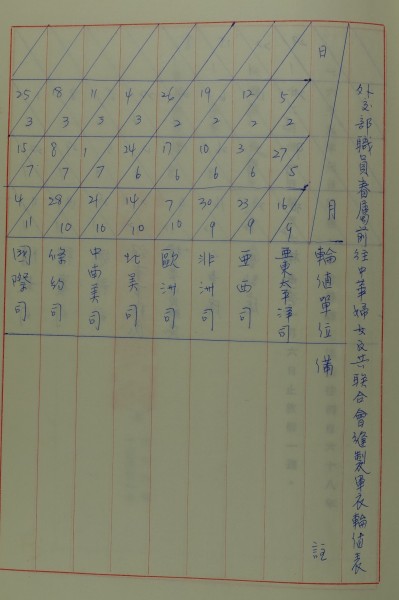 外交部職員眷屬前往中華婦女反共聯合會縫製軍衣輪值表
日 月 輪值單位 備註
5/2 27/5 16/9 亞東太平洋司
12/2 3/6 23/9 亞西司
19/2 10/6 30/9 非洲司
26/2 17/6 7/10 歐洲司
4/3 24/6 14/10 北美司
11/3 1/7 21/10 中南美司
18/3 8/7 28/10 條約司
25/3 15/7 4/11 國際司